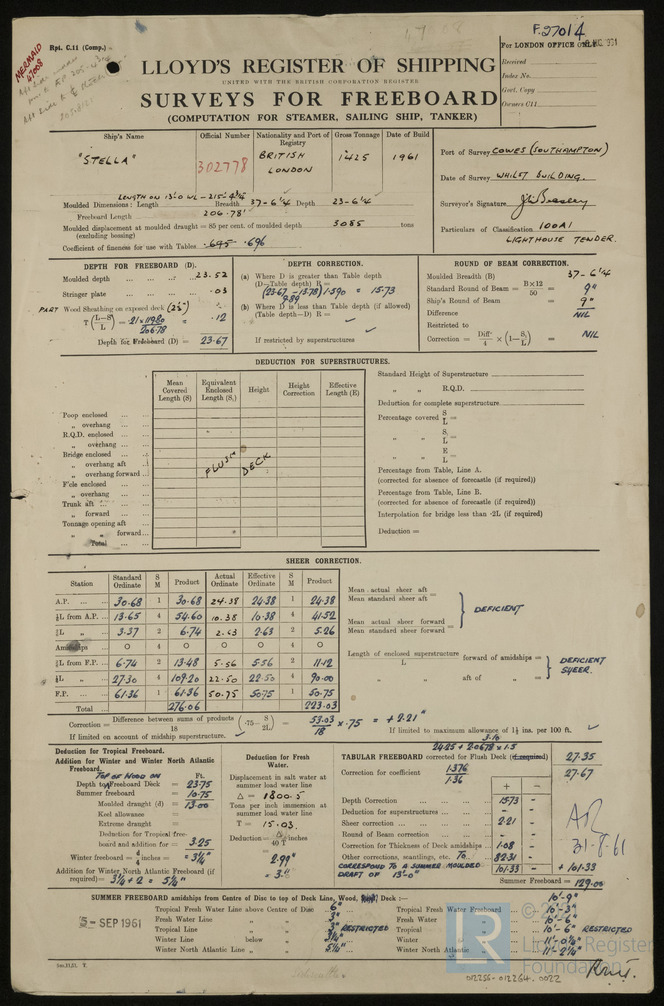 F.27014
Rpt. C.11 (Comp.)
For LONDON OFFICE only
MERMAID
47008
Received
Index No.
Govt. Copy
Owners C11
LLOYD'S REGISTER OF SHIPPING
UNITED WITH THE BRITISH CORPORATION REGISTER
SURVEYS FOR FREEBOARD
(COMPUTATION FOR STEAMER, SAILING SHIP, TANKER)
Ship's Name Official Number Nationality and Port of Registry Gross Tonnage Date of Build
"STELLA" 302778 BRITISH LONDON 1425 1961
Port of Survey COWES (SOUTHAMPTON)
Date of Survey WHILST BUILDING.
Surveyor's Signature
Particulars of Classification 100A1
LIGHTHOUSE TENDER.
LENGTH ON 13'.0 WL - 215'-4¾"
Moulded Dimensions: Length Breadth 37-6¼ Depth 23-6¼
Freeboard Length 206.78'
Moulded displacement at moulded draught = 85 per cent. of moulded depth 3085 tons
(excluding bossing)
Coefficient of fineness for use with Tables .695 .696
DEPTH FOR FREEBOARD (D).
Moulded depth 23.52
Stringer plate .03
PART Wood Sheathing on exposed deck (2½")
T (L-S/L) = .21 x 119.80 / 206.78 = .12
Depth for Freeboard (D) = 23.67
DEPTH CORRECTION.
(a) Where D is greater than Table depth
(D—Table depth) R =
(23.67 - 13.78) 1.590 = 15.73
9.89
(b) Where D is less than Table depth (if allowed)
(Table depth—D) R =
If restricted by superstructures
ROUND OF BEAM CORRECTION.
Moulded Breadth (B) 37-6¼
Standard Round of Beam = B×12/50 = 9"
Ship's Round of Beam = 9"
Difference NIL
Restricted to
Correction = Diff/4 × (1-S₁/L) = NIL
DEDUCTION FOR SUPERSTRUCTURES.
Mean Covered Length (S) Equivalent Enclosed Length (S₁) Height Height Correction Effective Length (E)
Poop enclosed
„ overhang
R.Q.D. enclosed
„ overhang
Bridge enclosed
„ overhang aft
„ overhang forward
F'cle enclosed
„ overhang
Trunk aft
„ forward
Tonnage opening aft
„ „ forward
Total
FLUSH DECK
Standard Height of Superstructure
„ „ R.Q.D.
Deduction for complete superstructure
Percentage covered S/L =
„ „ S₁/L =
„ „ E/L =
Percentage from Table, Line A.
(corrected for absence of forecastle (if required))
Percentage from Table, Line B.
(corrected for absence of forecastle (if required))
Interpolation for bridge less than ·2L (if required)
Deduction =
SHEER CORRECTION.
Station Standard Ordinate S M Product Actual Ordinate Effective Ordinate S M Product
A.P. 30.68 1 30.68 24.38 24.38 1 24.38
⅙L from A.P. 13.65 4 54.60 10.38 10.38 4 41.52
⅓L „ 3.37 2 6.74 2.63 2.63 2 5.26
Amidships 0 4 0 0 4 0
⅓L from F.P. 6.74 2 13.48 5.56 5.56 2 11.12
⅙L „ 27.30 4 109.20 22.50 22.50 4 90.00
F.P. 61.36 1 61.36 50.75 50.75 1 50.75
Total 276.06 223.03
Mean actual sheer aft
Mean standard sheer aft =
Mean actual sheer forward
Mean standard sheer forward =
DEFICIENT
Length of enclosed superstructure forward of amidships =
L
„ „ aft of „ =
DEFICIENT SHEER.
Correction = Difference between sums of products / 18 (·75 - S/2L) = 53.03/18 x .75 = + 2.21"
If limited on account of midship superstructure.
If limited to maximum allowance of 1½ ins. per 100 ft.
3.10
Deduction for Tropical Freeboard.
Addition for Winter and Winter North Atlantic Freeboard.
TOP OF WOOD ON Ft.
Depth to Freeboard Deck = 23.75
Summer freeboard = 10.75
Moulded draught (d) = 13.00
Keel allowance =
Extreme draught =
Deduction for Tropical freeboard and addition for = 3.25
Winter freeboard = d/4 inches = 3¼"
Addition for Winter North Atlantic Freeboard (if required) = 3¼ + 2 = 5¼"
Deduction for Fresh Water.
Displacement in salt water at summer load water line
Δ = 1800.5
Tons per inch immersion at summer load water line
T = 15.03
Deduction = Δ/40 T inches
= 2.99"
= 3"
TABULAR FREEBOARD corrected for Flush Deck (if required)
24.25 + 2.0678 x 1.5
27.35
Correction for coefficient 1.376/1.36 27.67
+ -
Depth Correction 15.73 -
Deduction for superstructures - -
Sheer correction 2.21 -
Round of Beam correction - -
Correction for Thickness of Deck amidships 1.08 -
Other corrections, scantlings, etc. TO 82.31 -
CORRESPOND TO A SUMMER MOULDED DRAFT OF 13'-0" 101.33 - + 101.33
Summer Freeboard = 129.00
31-8-61
SUMMER FREEBOARD amidships from Centre of Disc to top of Deck Line, Wood, Deck :— 10'-9"
5 - SEP 1961
Tropical Fresh Water Line above Centre of Disc 6" Tropical Fresh Water Freeboard 10'-3"
Fresh Water Line „ 3" Fresh Water „ 10'-6"
Tropical Line „ 3" RESTRICTED Tropical „ 10'-6" RESTRICTED
Winter Line below „ 3¼" Winter „ 11'-0¼"
Winter North Atlantic Line „ 5¼" Winter North Atlantic „ 11'-2¼"
LR
Lloyd's Register
Foundation
012256-012264-0022